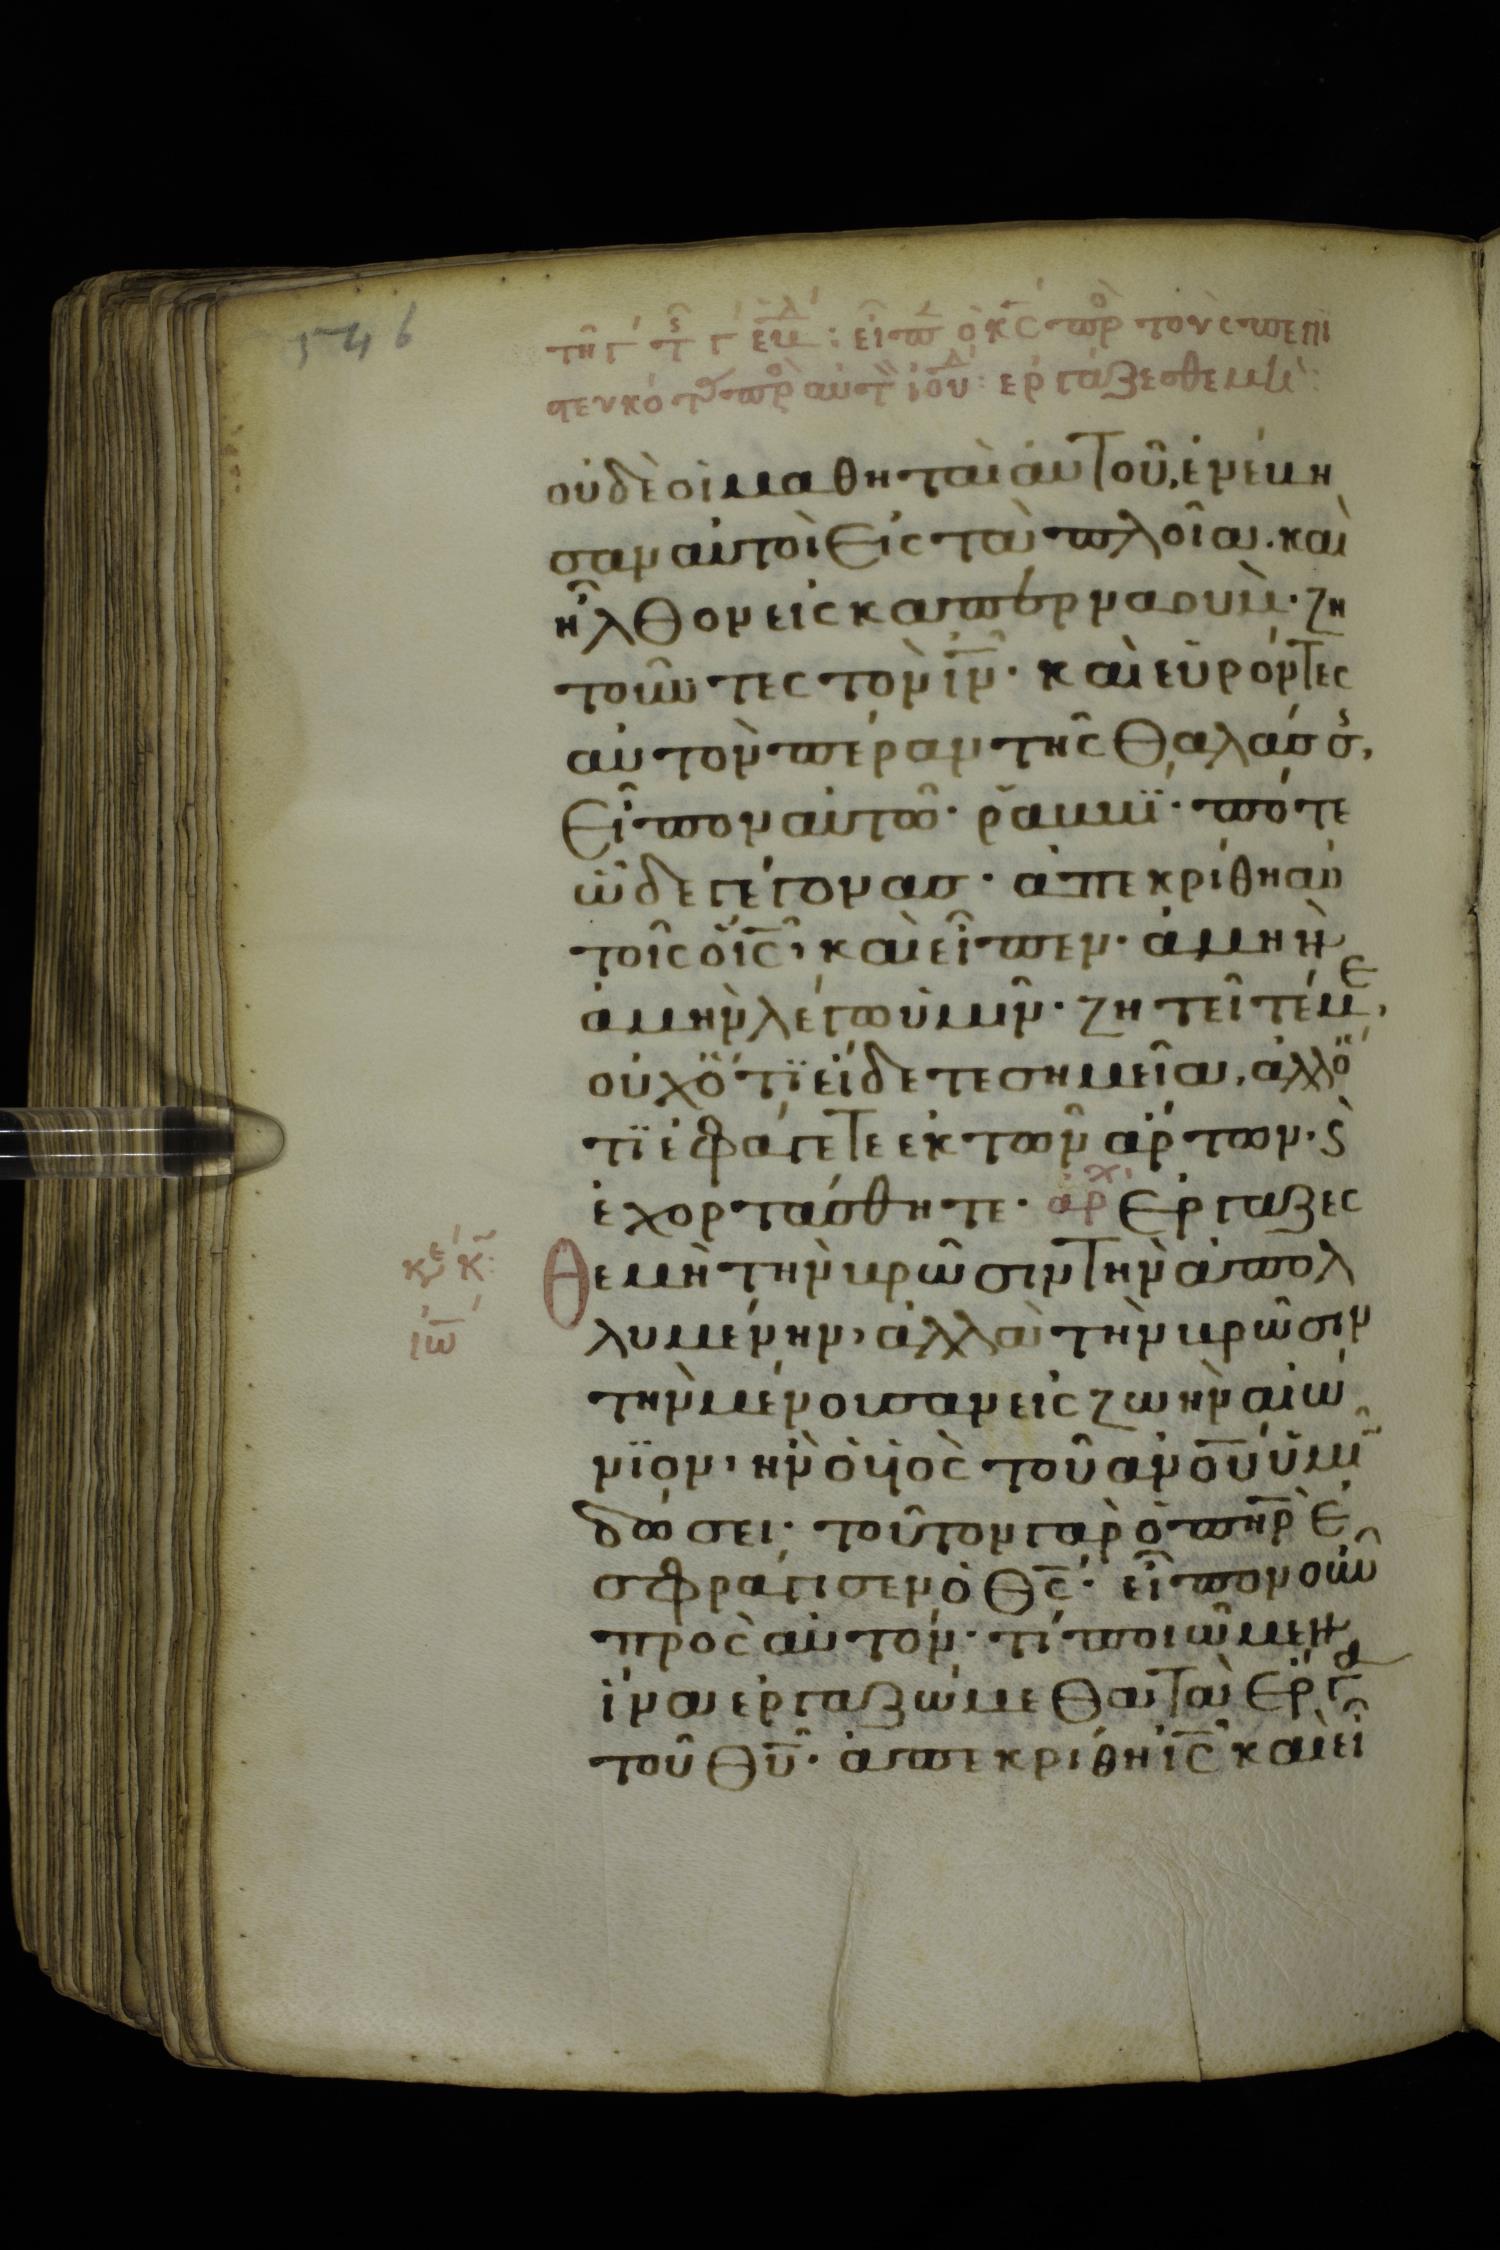 546
τῆ γ τ γ εβδ : εἶπ ὁ κς πρ τοὺς πεπι
στευκότ πρ αὐτ ἰου : ἐργάζεσθε μὴ :
οὐδὲ οἱ μαθηταὶ αὐτοῦ, ἐνέβη
σαν αὐτοὶ εἰς τὰ πλοῖα. καὶ
ἦλθον εἰς καπερναοὺμ· ζη
τοῦντες τὸν ιν· καὶ εὑρόντες
αὐτὸν πέραν τῆς θαλάσσ,
εἶπον αὐτῶ· ῥαββϊ· πότε
ὧδε γέγονας· ἀπεκρίθη αὐ
τοῖς ὁ ις, καὶ εἶπεν· ἀμὴν
ἀμὴν λέγω ὑμῖν· ζητεῖτέ με,
οὐχ ὅτϊ εἴδετε σημεῖα, ἀλλ' ὅ
τϊ ἐφάγετε ἐκ τῶν ἄρτων· ϗ
ἐχορτάσθητε· ἀρχ Ἐργάζεσ
θε μὴ τὴν βρῶσιν τὴν ἀπολ
λυμένην, ἀλλὰ τὴν βρῶσιν
τὴν μένουσαν εἰς ζωὴν αἰώ
νϊον, ἣν ὁ υἱὸς τοῦ ανου ὑμῖ
δώσει· τοῦτον γὰρ ὁ πηρ ἐ
σφράγισεν ὁ θς· εἶπον οὖν
πρὸς αὐτόν· τί ποιῶμεν
ἵνα ἐργαζώμεθα τὰ ἔργα
τοῦ θυ· ἀπεκρίθη ις καὶ εἶ
κε κ:
ιω